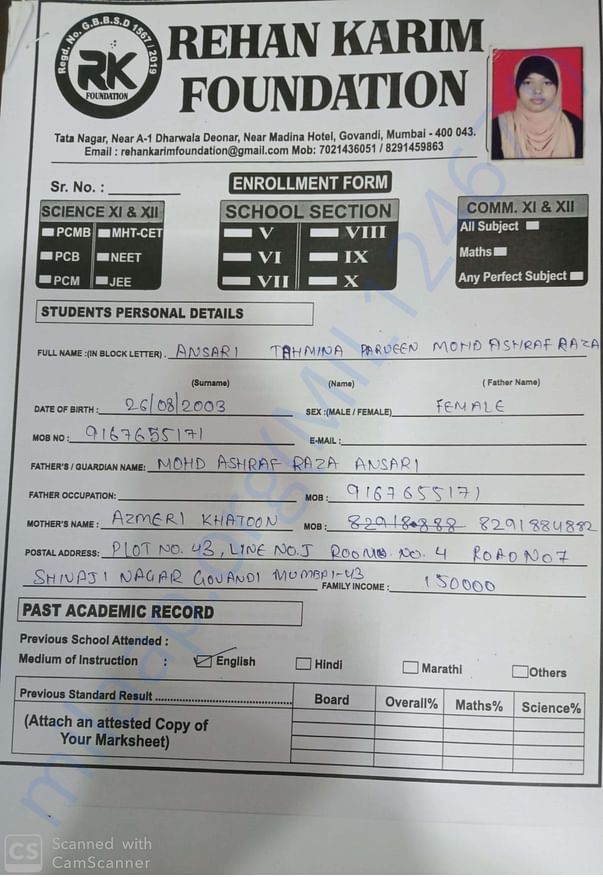 Regd. No. G.B.B.S.D 1567 / 2019
RK
FOUNDATION
REHAN KARIM
FOUNDATION
Tata Nagar, Near A-1 Dharwala Deonar, Near Madina Hotel, Govandi, Mumbai - 400 043.
Email : rehankarimfoundation@gmail.com Mob: 7021436051 / 8291459863
Sr. No. :
ENROLLMENT FORM
SCIENCE XI & XII
PCMB MHT-CET
PCB NEET
PCM JEE
SCHOOL SECTION
V VIII
VI IX
VII X
COMM. XI & XII
All Subject
Maths
Any Perfect Subject
STUDENTS PERSONAL DETAILS
FULL NAME :(IN BLOCK LETTER) . ANSARI TAHMINA PARVEEN MOHD ASHRAF RAZA
(Surname) (Name) ( Father Name)
DATE OF BIRTH : 26/08/2003 SEX :(MALE / FEMALE) FEMALE
MOB NO : 9167655171 E-MAIL :
FATHER'S / GUARDIAN NAME: MOHD ASHRAF RAZA ANSARI
FATHER OCCUPATION: MOB : 9167655171
MOTHER'S NAME : AZMERI KHATOON MOB : 8291884882
POSTAL ADDRESS: PLOT NO. 43, LINE NO. J ROOM NO. 4 ROAD NO 7
SHIVAJI NAGAR GOVANDI MUMBAI-43 FAMILY INCOME : 150000
PAST ACADEMIC RECORD
Previous School Attended :
Medium of Instruction : English Hindi Marathi Others
Previous Standard Result ........................ Board Overall% Maths% Science%
(Attach an attested Copy of
Your Marksheet)
CS Scanned with
CamScanner